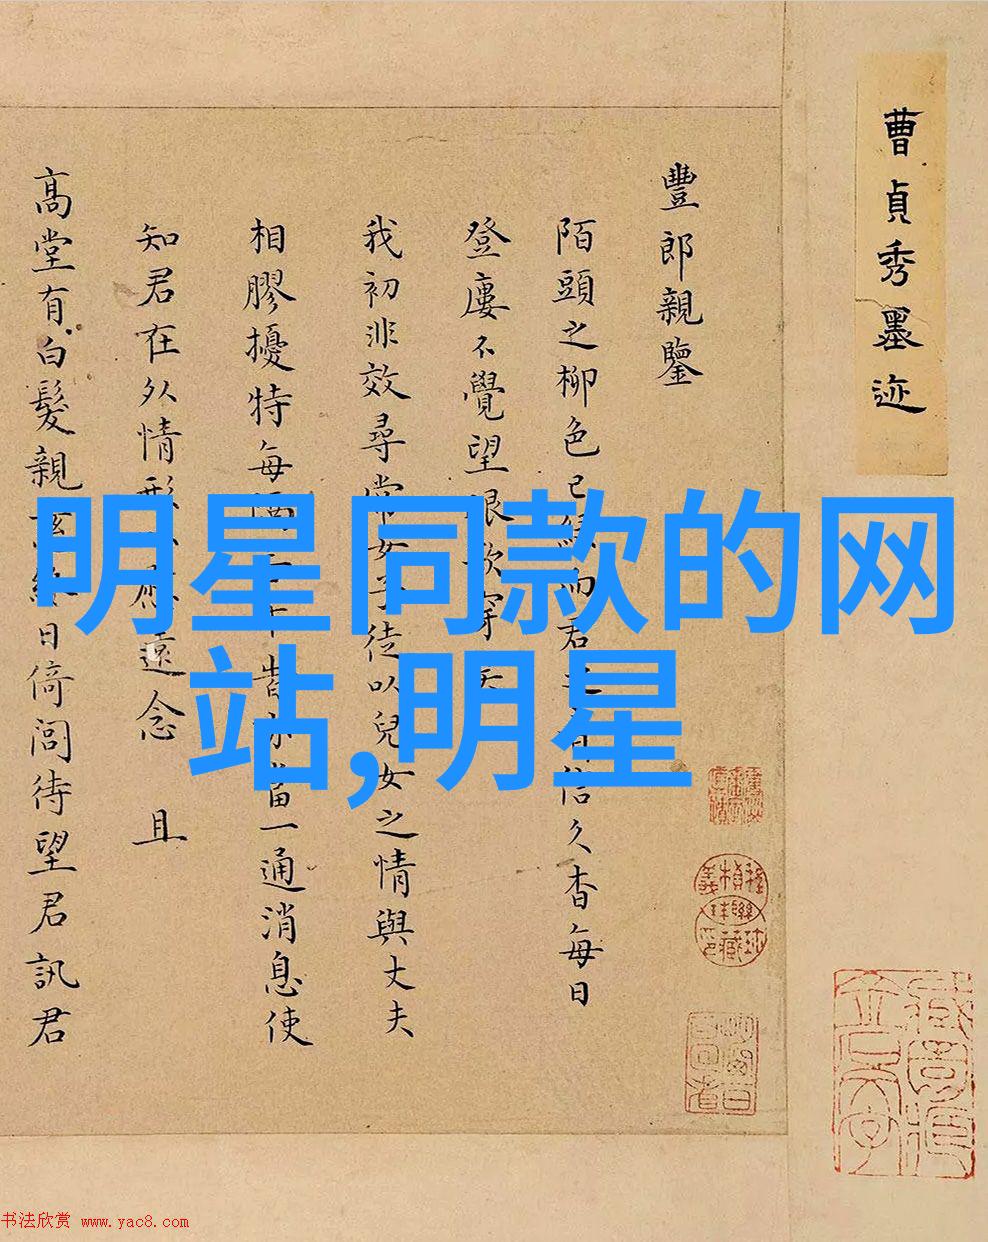 曹貞秀墨迹
豐郎親鑒
陌頭之柳色已綠而君之音信久杳每日
登樓不覺望眼欲穿
我初非效尋常女子徒以兒女之情與丈夫
相膠擾特每一通消息使
知君在外情形應遠念 且
高堂有白髮親終日倚閭待望君訊君
明星同款的网
站,明星
书法欣赏 www.yac8.com